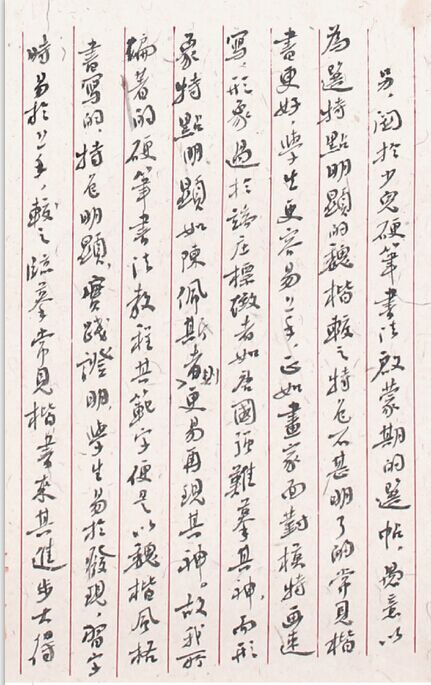 另,關於少兒硬筆書法啟蒙期的選帖,愚意以
為選特點明顯的魏楷較之特色不甚明了的常見楷
書更好,學生更容易上手,正如畫家面對模特畫速
寫,形象過於端莊標緻者如唐國強難摹其神,而形
象特點明顯如陳佩斯者則更易再現其神。故我所
編著的硬筆書法教程其範字便是以魏楷風格
書寫的,特色明顯,實踐證明,學生易於發現,習字
時易於上手,較之臨摹常見楷書來其進步大得